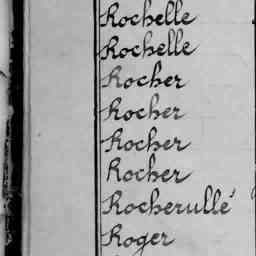 Rochelle
Rochelle
Rocher
Rocher
Rocher
Rocher
Rocherullé
Roger